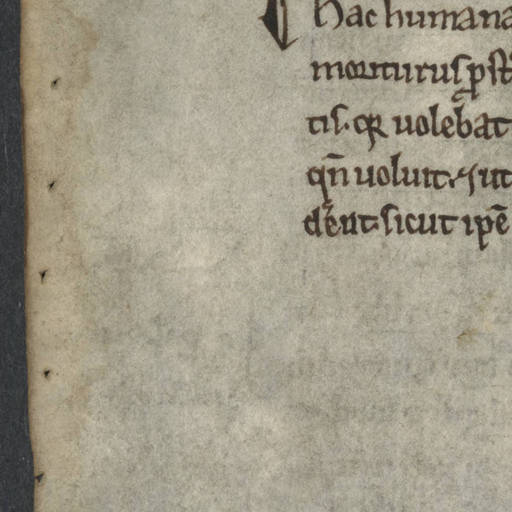 hac humana
moriturus p
tis. qꝛ uolebat
qn̄ uoluit. ⁊ ut
derēt. sicut ip̄e